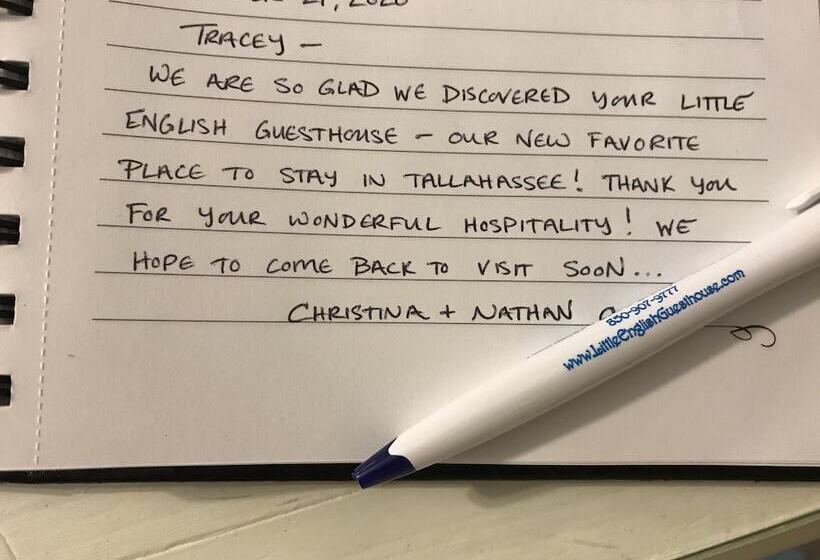 TRACEY —
WE ARE SO GLAD WE DISCOVERED YOUR LITTLE
ENGLISH GUESTHOUSE — OUR NEW FAVORITE
PLACE TO STAY IN TALLAHASSEE! THANK YOU
FOR YOUR WONDERFUL HOSPITALITY! WE
HOPE TO COME BACK TO VISIT SOON...
CHRISTINA + NATHAN
850-907-9777
www.LittleEnglishGuesthouse.com